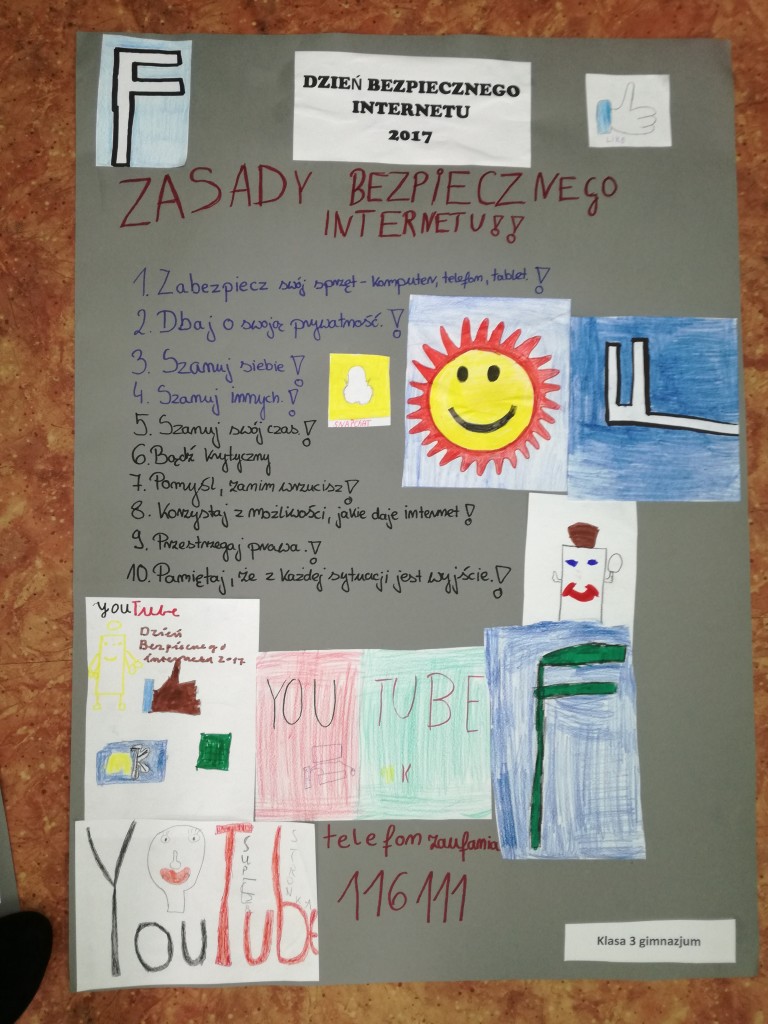 F
DZIEŃ BEZPIECZNEGO
INTERNETU
2017
LIKE
ZASADY BEZPIECZNEGO
INTERNETU!!
1. Zabezpiecz swój sprzęt - komputer, telefon, tablet!
2. Dbaj o swoją prywatność!
3. Szanuj siebie!
4. Szanuj innych!
5. Szanuj swój czas!
6. Bądź krytyczny
7. Pomyśl, zanim wrzucisz!
8. Korzystaj z możliwości, jakie daje internet!
9. Przestrzegaj prawa!
10. Pamiętaj, że z każdej sytuacji jest wyjście!
SNAPCHAT
F
YouTube
Dzień
Bezpiecznego
internetu 2017
K
YOU TUBE
K
F
YouTube
telefon zaufania
116111
Klasa 3 gimnazjum